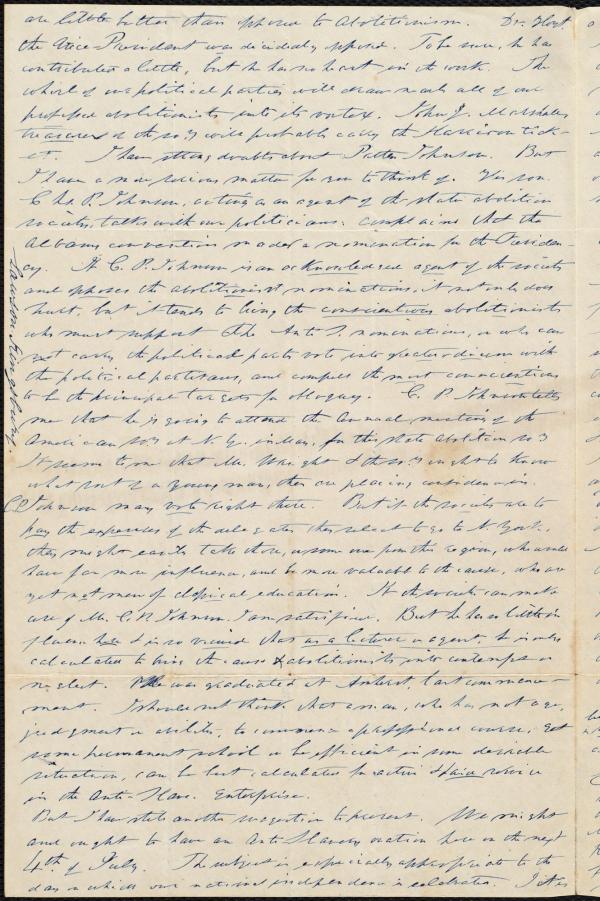 are little better than opposed to Abolitionism. Dr. Hoyt
the Vice-President was decidedly opposed. To be sure, he has
contributed a little, but he has no heart in the work. The
whirl of our political parties will draw nearly all of our
professed abolitionists into its vortex. John J. Marshall
treasurer of the so'y will probably carry the Harrison tick-
et. I have strong doubts about Johnson. But
I have a more serious matter for you to think of. His son
Chs. P. Johnson, acting as an agent of the state abolition
society, talks with our politicians: complains that the
Albany convention made a nomination for the Presiden-
cy. If C. P. Johnson is an acknowledged agent of the society
and opposes the abolitionist nominations, it not only does
hurt, but it tends to bring the conscientious abolitionists
who must support the Anti S. nominations, or who can
not carry the political party vote into greater discord with
the political partisans, and compels the most conscientious
to be the principal targets for obloquy. C. P. Johnson tells
me that he is going to attend the annual meeting of the
American so'y at N. Y. in May, for this state abolition so'y
It seems to me that Mr. Wright & the so'y ought to know
what sort of a young man, they are placing confidence in.
C P Johnson may vote right there. But if the society are to
pay the expenses of the delegates they select to go to N. York,
they might easily take those, or some one from this region, who would
have far more influence, and be more valuable to the cause, who are
yet not men of classical education. If the society can make
use of Mr. C. P. Johnson I am satisfied. But he has so little in
fluence here & is so viewed that as a lecturer or agent, he is only
calculated to bring the cause & abolitionists into contempt or
neglect. He was graduated at Amherst, last commence-
ment. I should not think that a man, who has not age,
judgment or ability, to commence a professional course, get
some permanent school or be efficient in some desirable
situation, can be best calculated for active & paid service
in the Anti-Slave. Enterprise.
But I have still another suggestion to present. We might
and ought to have an Anti Slavery oration here on the next
4th of July. The subject is especially appropriate to the
day on which our national independence is celebrated. I
Lawson Kingsbury.